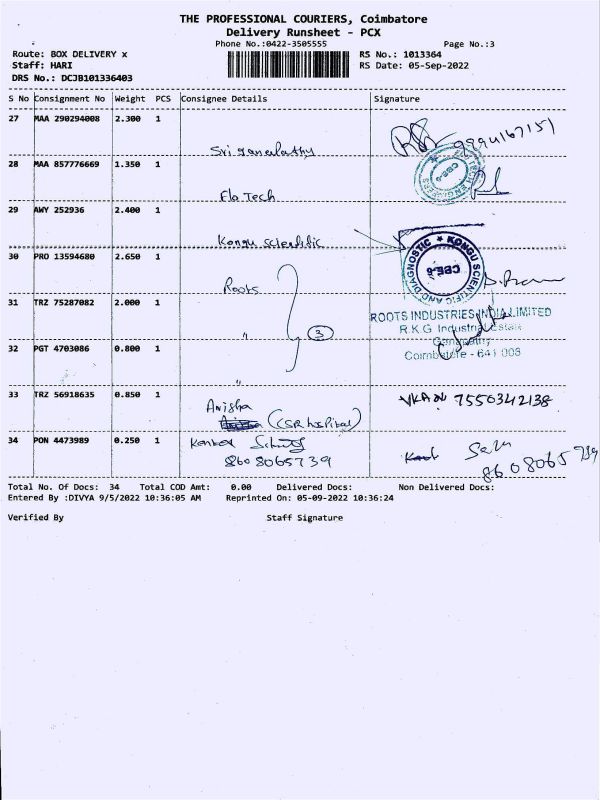 THE PROFESSIONAL COURIERS, Coimbatore
Delivery Runsheet - PCX
Phone No.:0422-3505555 Page No.:3
Route: BOX DELIVERY x RS No.: 1013364
Staff: HARI RS Date: 05-Sep-2022
DRS No.: DCJB101336403
S No Consignment No Weight PCS Consignee Details Signature
27 MAA 290294008 2.300 1
Sri ganapathy 9994167151
28 MAA 857776669 1.350 1
Flo Tech
29 AWY 252936 2.400 1
Kongu scientific
KONGU SCIENTIFIC AND DIAGNOSTIC ★ CBE-6
30 PRO 13594680 2.650 1
Roots
31 TRZ 75287082 2.000 1
" 3
ROOTS INDUSTRIES INDIA LIMITED
R.K.G Industrial Estate
Ganapathy
Coimbatore - 641 006
32 PGT 4703086 0.800 1
"
33 TRZ 56918635 0.850 1
Anisha
(CSR hospital) 7550342138
34 PON 4473989 0.250 1
8608065739 8608065739
Total No. Of Docs: 34 Total COD Amt: 0.00 Delivered Docs: Non Delivered Docs:
Entered By :DIVYA 9/5/2022 10:36:05 AM Reprinted On: 05-09-2022 10:36:24
Verified By Staff Signature